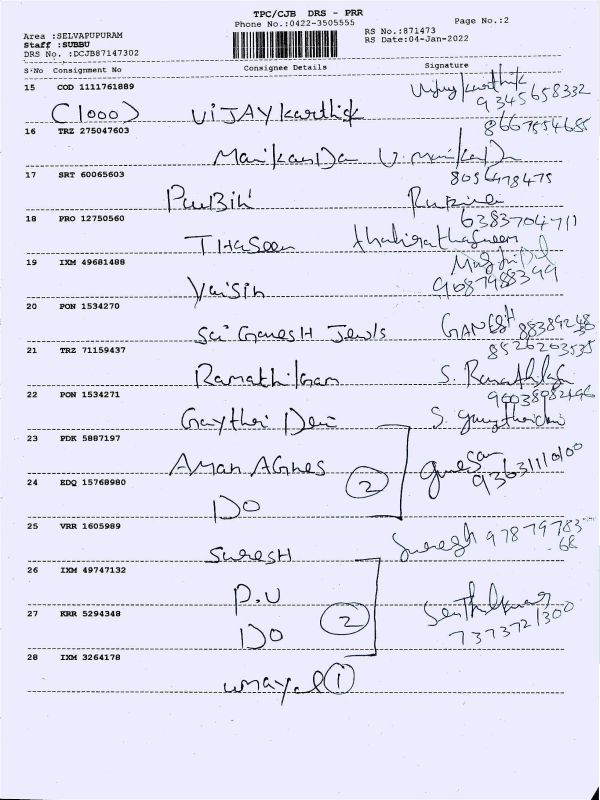 TPC/CJB DRS - PRR
Phone No.:0422-3505555 Page No.:2
Area :SELVAPUPURAM RS No.:871473
Staff :SUBBU RS Date:04-Jan-2022
DRS No. :DCJB87147302
S.No Consignment No Consignee Details Signature
15 COD 1111761889 Vijay karthik
(1000) VIJAY karthik 9345658332
16 TRZ 275047603 8667554685
Manikanda V. manikanda
17 SRT 60065603 8056478475
18 PRO 12750560 6383704711
THaSeen
19 IXM 49681488
Yaisin 9087988399
20 PON 1534270
Sai GaneSH Jewls GANESH 88389248
21 TRZ 71159437 8526203535
Ramathilgam S. Ramathilaga
22 PON 1534271
Gaythri Devi S. gaythridevi
23 PDK 5887197
AMAN AGNES 93631110100
24 EDQ 15768980 (2)
DO
25 VRR 1605989
SureSH Suresh 97879783
68
26 IXM 49747132
P.U
27 KRR 5294348 (2) Senthilkumar
DO 7373721300
28 IXM 3264178
umayal (1)